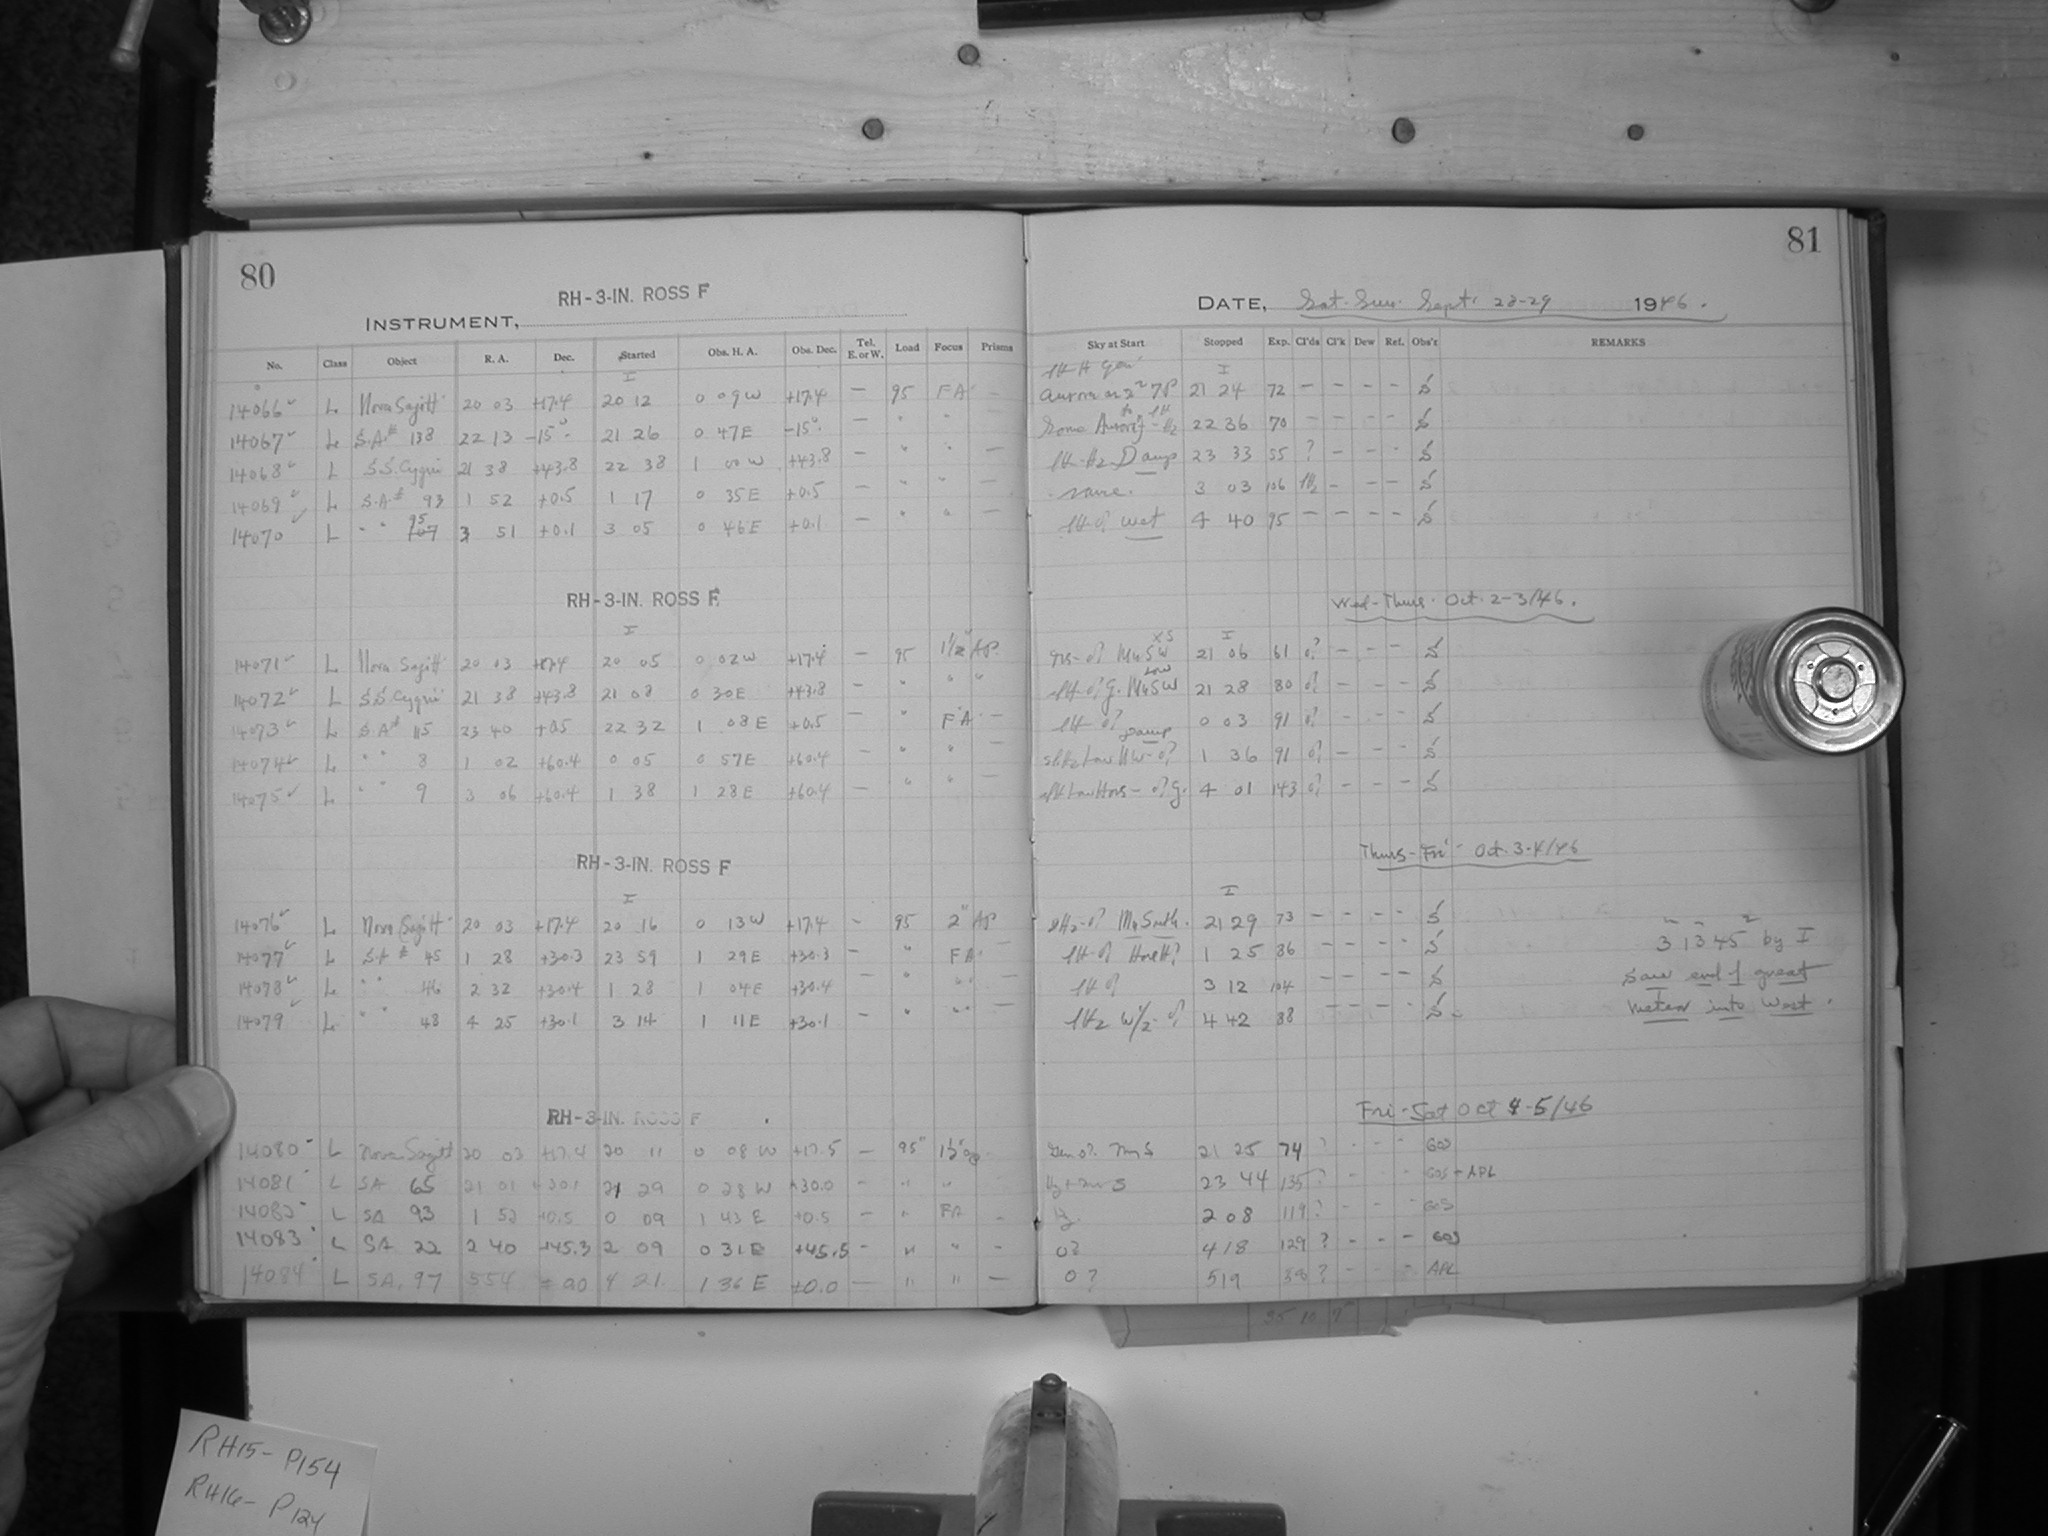 80
81
RH-3-IN. ROSS F
INSTRUMENT,
DATE, Sat-Sun. Sept. 28-29 1946.
No. Class Object R. A. Dec. Started Obs. H. A. Obs. Dec. Tel. E. or W. Load Focus Prisms Sky at Start Stopped Exp. Cl'ds Cl'k Dew Ref. Obs'r REMARKS
I I
14066 L Nova Sagitt 20 03 +17.4 20 12 0 09 W +17.4 — 95 FA — Aurora 21 24 72 — — — — S
14067 L S.A# 138 22 13 -15° 21 26 0 47 E -15° — " " Some Aurora 22 36 70 — — — — S
14068 L S.S. Cygni 21 38 +43.8 22 38 1 00 W +43.8 — " " — Damp 23 33 55 ? — — — S
14069 L S.A# 93 1 52 +0.5 1 17 0 35 E +0.5 — " " — same. 3 03 106 — — — S
14070 L " " 95 107 3 51 +0.1 3 05 0 46 E +0.1 — " " — wet 4 40 95 — — — — S
RH-3-IN. ROSS F.
Wed-Thurs. Oct. 2-3/46.
I I
14071 L Nova Sagitt 20 03 +17.4 20 05 0 02 W +17.4 — 95 1½" AP. 21 06 61 o? — — — S
14072 L S.S. Cygni 21 38 +43.8 21 08 0 30 E +43.8 — " " " 21 28 80 o? — — — S
14073 L S.A# 115 23 40 +0.5 22 32 1 08 E +0.5 — " FA — 0 03 91 o? — — — S
14074 L " " 8 1 02 +60.4 0 05 0 57 E +60.4 — " " — 1 36 91 o? — — — S
14075 L " " 9 3 06 +60.4 1 38 1 28 E +60.4 — " " — 4 01 143 o? — — — S
RH-3-IN. ROSS F
Thurs-Fri- Oct. 3-4/46
I I
14076 L Nova Sagitt 20 03 +17.4 20 16 0 13 W +17.4 — 95 2" AP 21 29 73 — — — — S
14077 L S.A # 45 1 28 +30.3 23 59 1 29 E +30.3 — " FA — 1 25 86 — — — — S 3 13 45 by I
14078 L " " 46 2 32 +30.4 1 28 1 04 E +30.4 — " " — 3 12 104 — — — — S Saw end of great
14079 L " " 48 4 25 +30.1 3 14 1 11 E +30.1 — " " — 4 42 88 — — — — S meteor into West.
RH-3-IN. ROSS F
Fri-Sat Oct 4-5/46
14080 L Nova Sagitt 20 03 +17.4 20 11 0 08 W +17.5 — 95" 21 25 74 ? - - - GOS
14081 L SA 65 21 01 +30.1 21 29 0 28 W +30.0 — " " 23 44 135 ? - - - GOS-APL
14082 L SA 93 1 52 +0.5 0 09 1 43 E +0.5 — " FA — Hz. 2 08 119 ? - - - GOS
14083 L SA 22 2 40 +45.3 2 09 0 31 E +45.5 — " " — 0? 4 18 129 ? - - - GOS
14084 L SA. 97 5 54 4 21 1 36 E +0.0 — " " — 0? 5 19 ? - - - APL
RH15- P154
RH16- P124